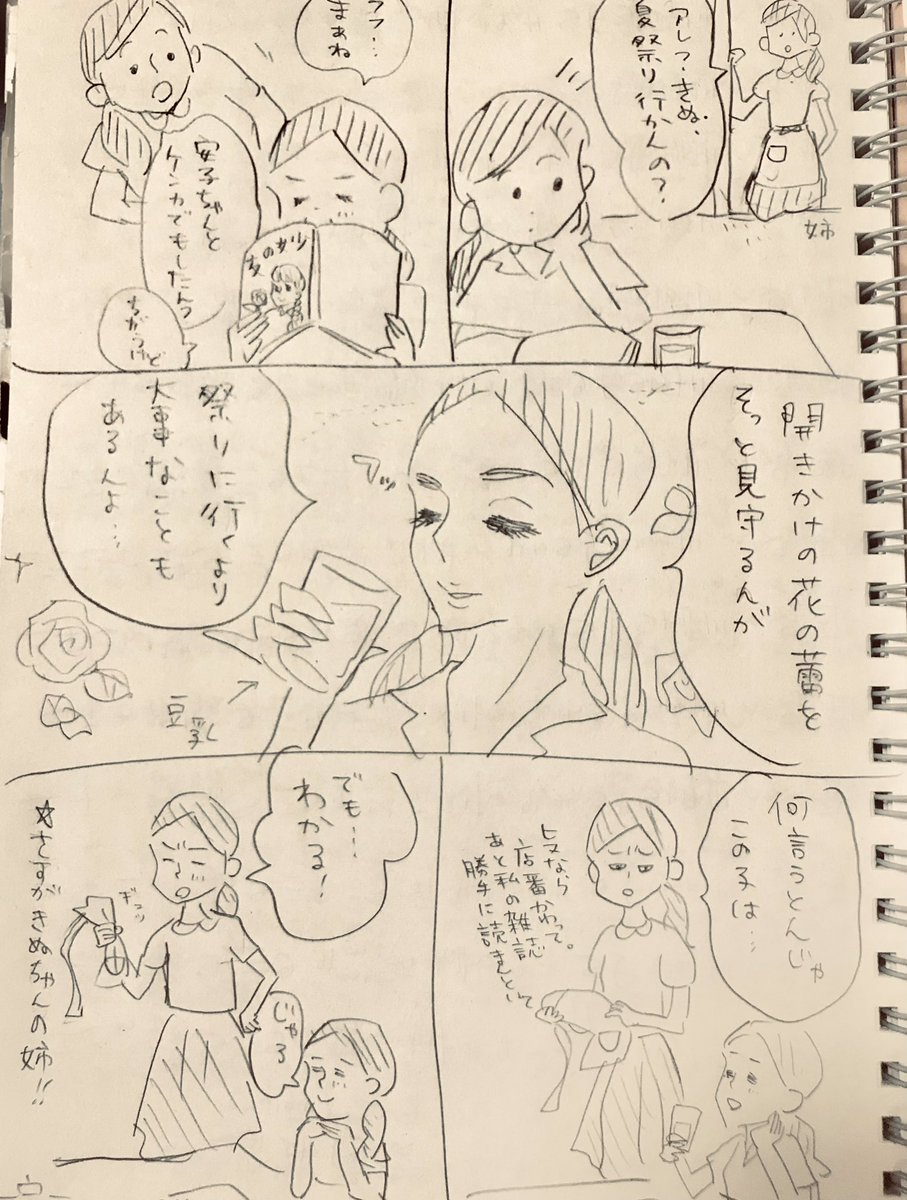 アレフ・きぬ、
夏祭り行かんの?
姉
フフ…
まあね
安子ちゃんと
ケンカでもしたん?
ちがうけど
女の妙
開きかけの花の蕾を
そっと見守るんが
祭りに行くより
大事なことも
あるんよ…
フッ
豆乳
何言うとんじゃ
この子は…
ヒマなら
店番かわって。
あと私の雑誌
勝手に読まんといて
でも…
わかる!
ギュッ
じゃろ
☆さすがきぬちゃんの姉!!